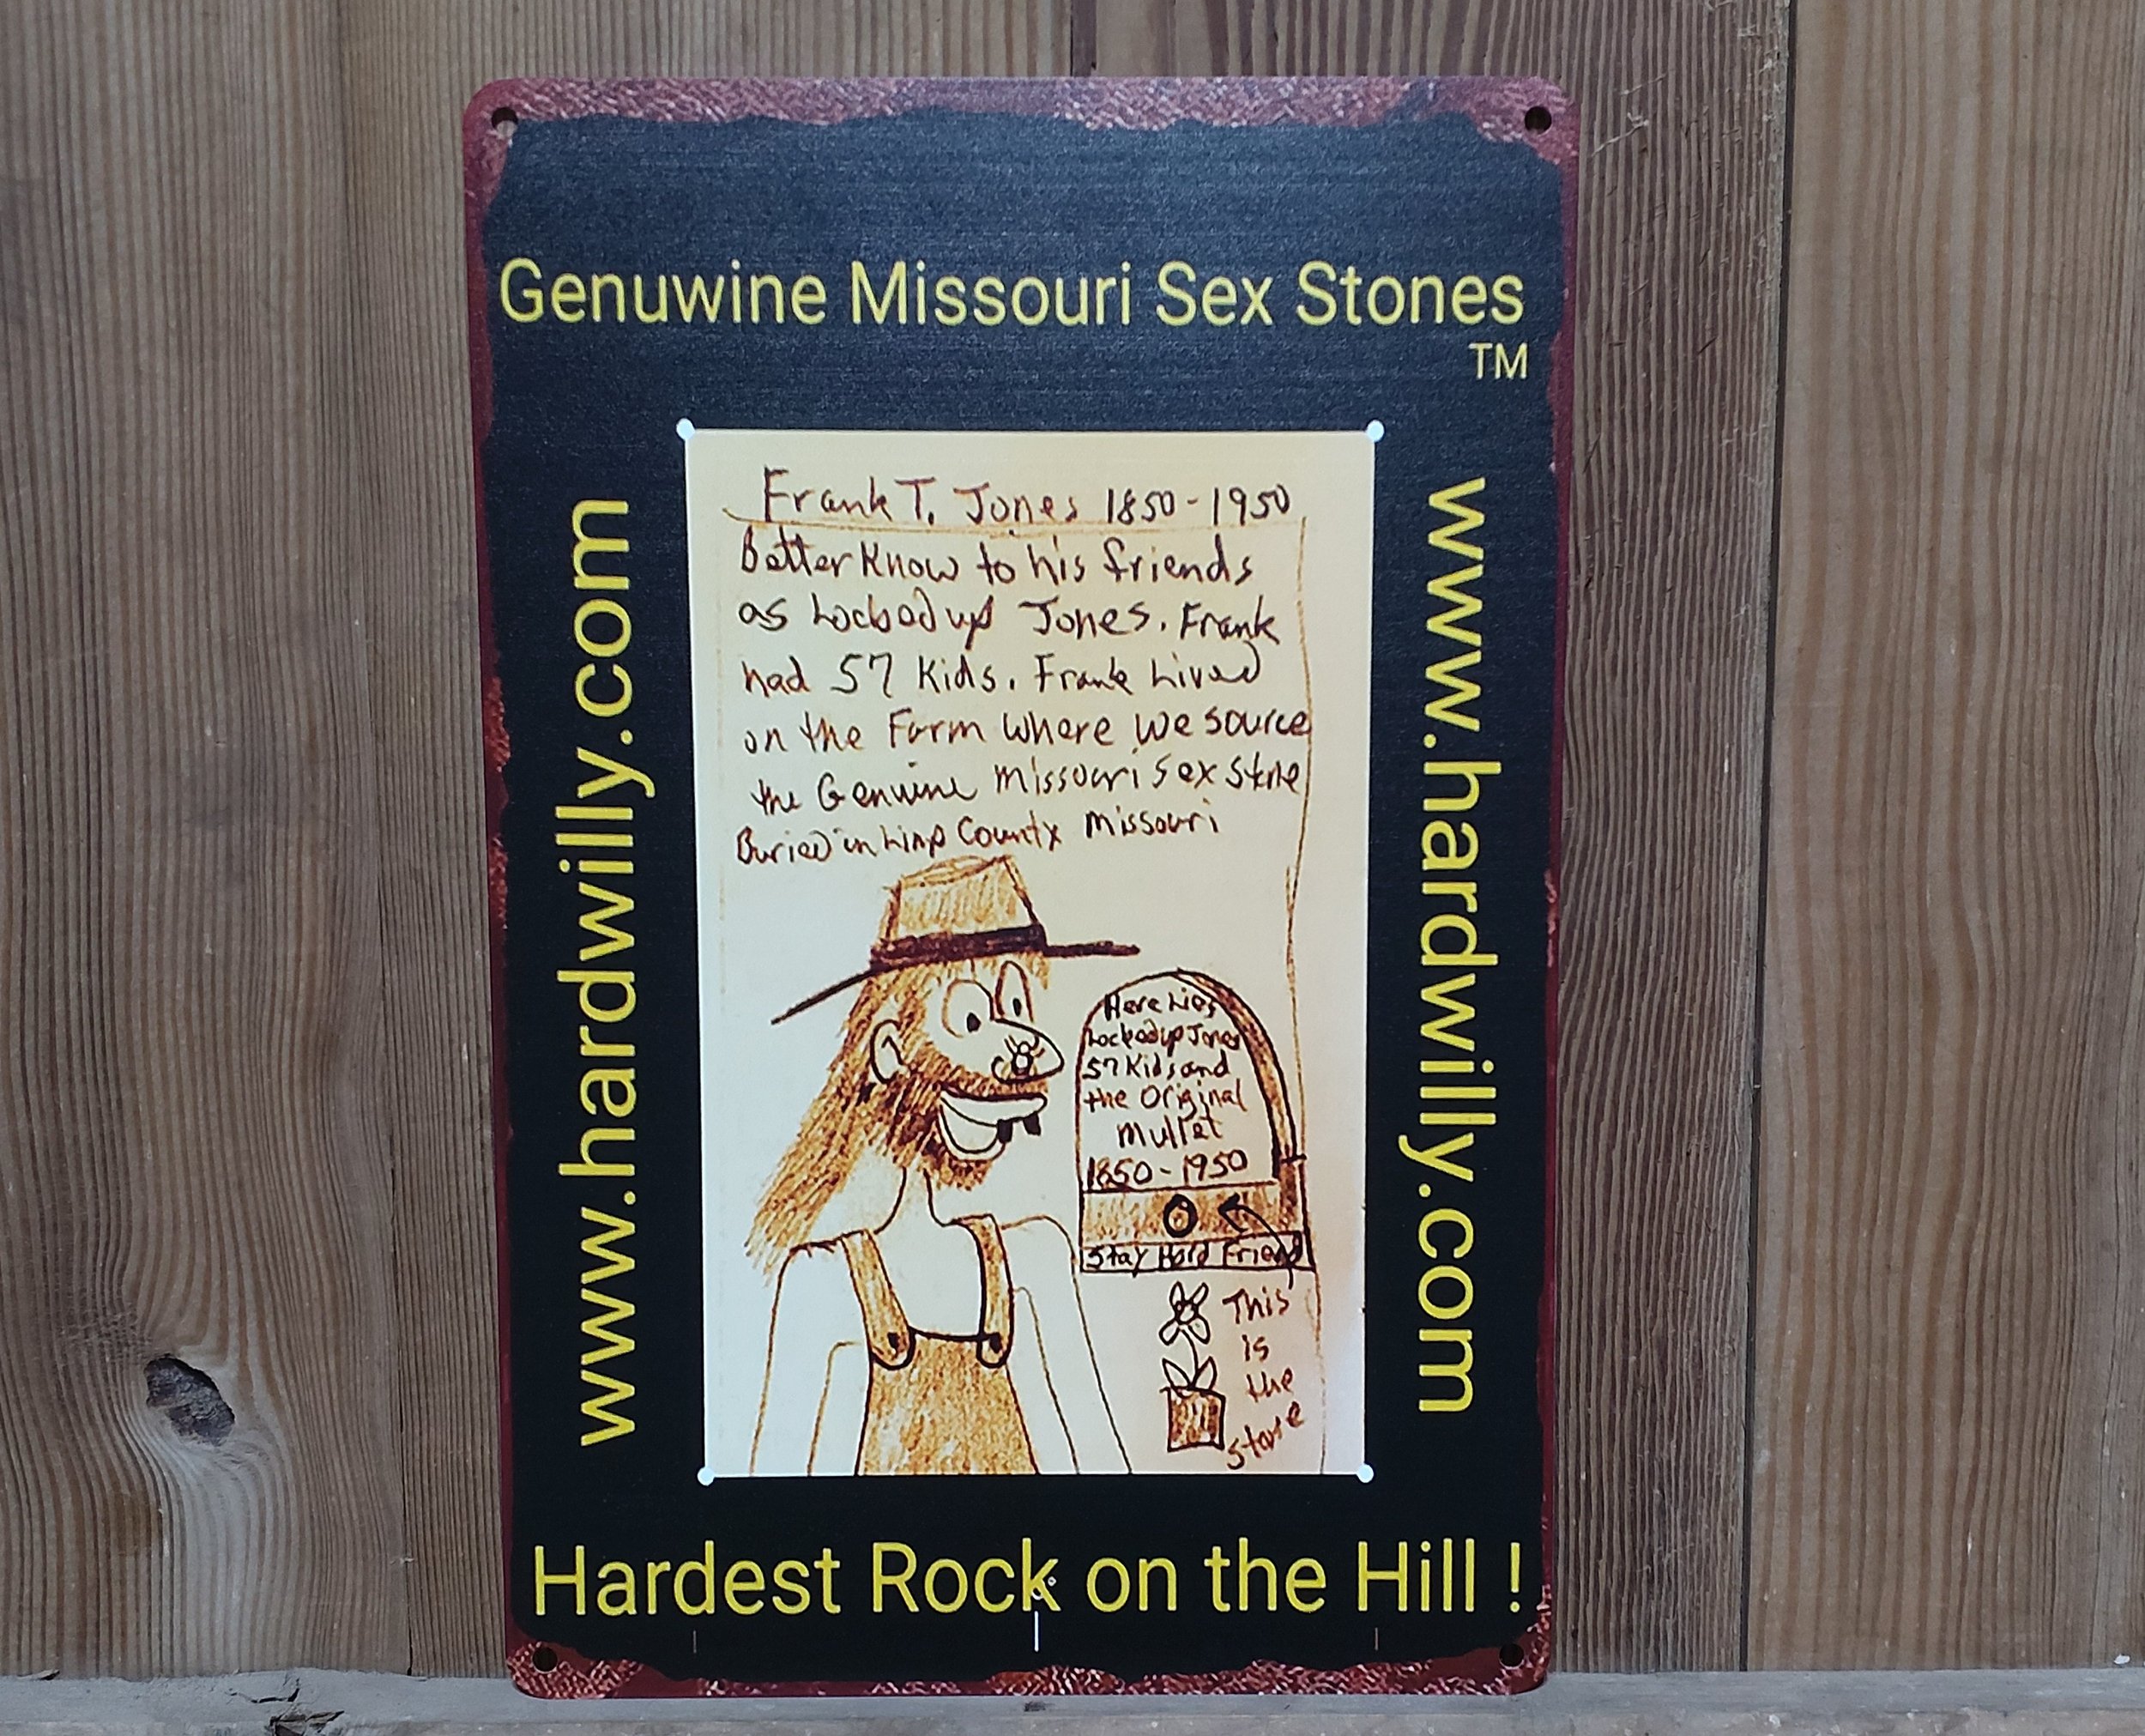 Genuwine Missouri Sex Stones
TM
www.hardwilly.com
www.hardwilly.com
Frank T. Jones 1850-1950
Better Know to his friends
as Locked up Jones. Frank
had 57 Kids. Frank Lived
on the Farm Where We source
the Genuine Missouri Sex Stone
Buried in Limp County Missouri
Here Lies
Locked up Jones
57 Kids and
the Original
Mullet
1850-1950
Stay Hard Friend
This
is
the
stone
Hardest Rock on the Hill !